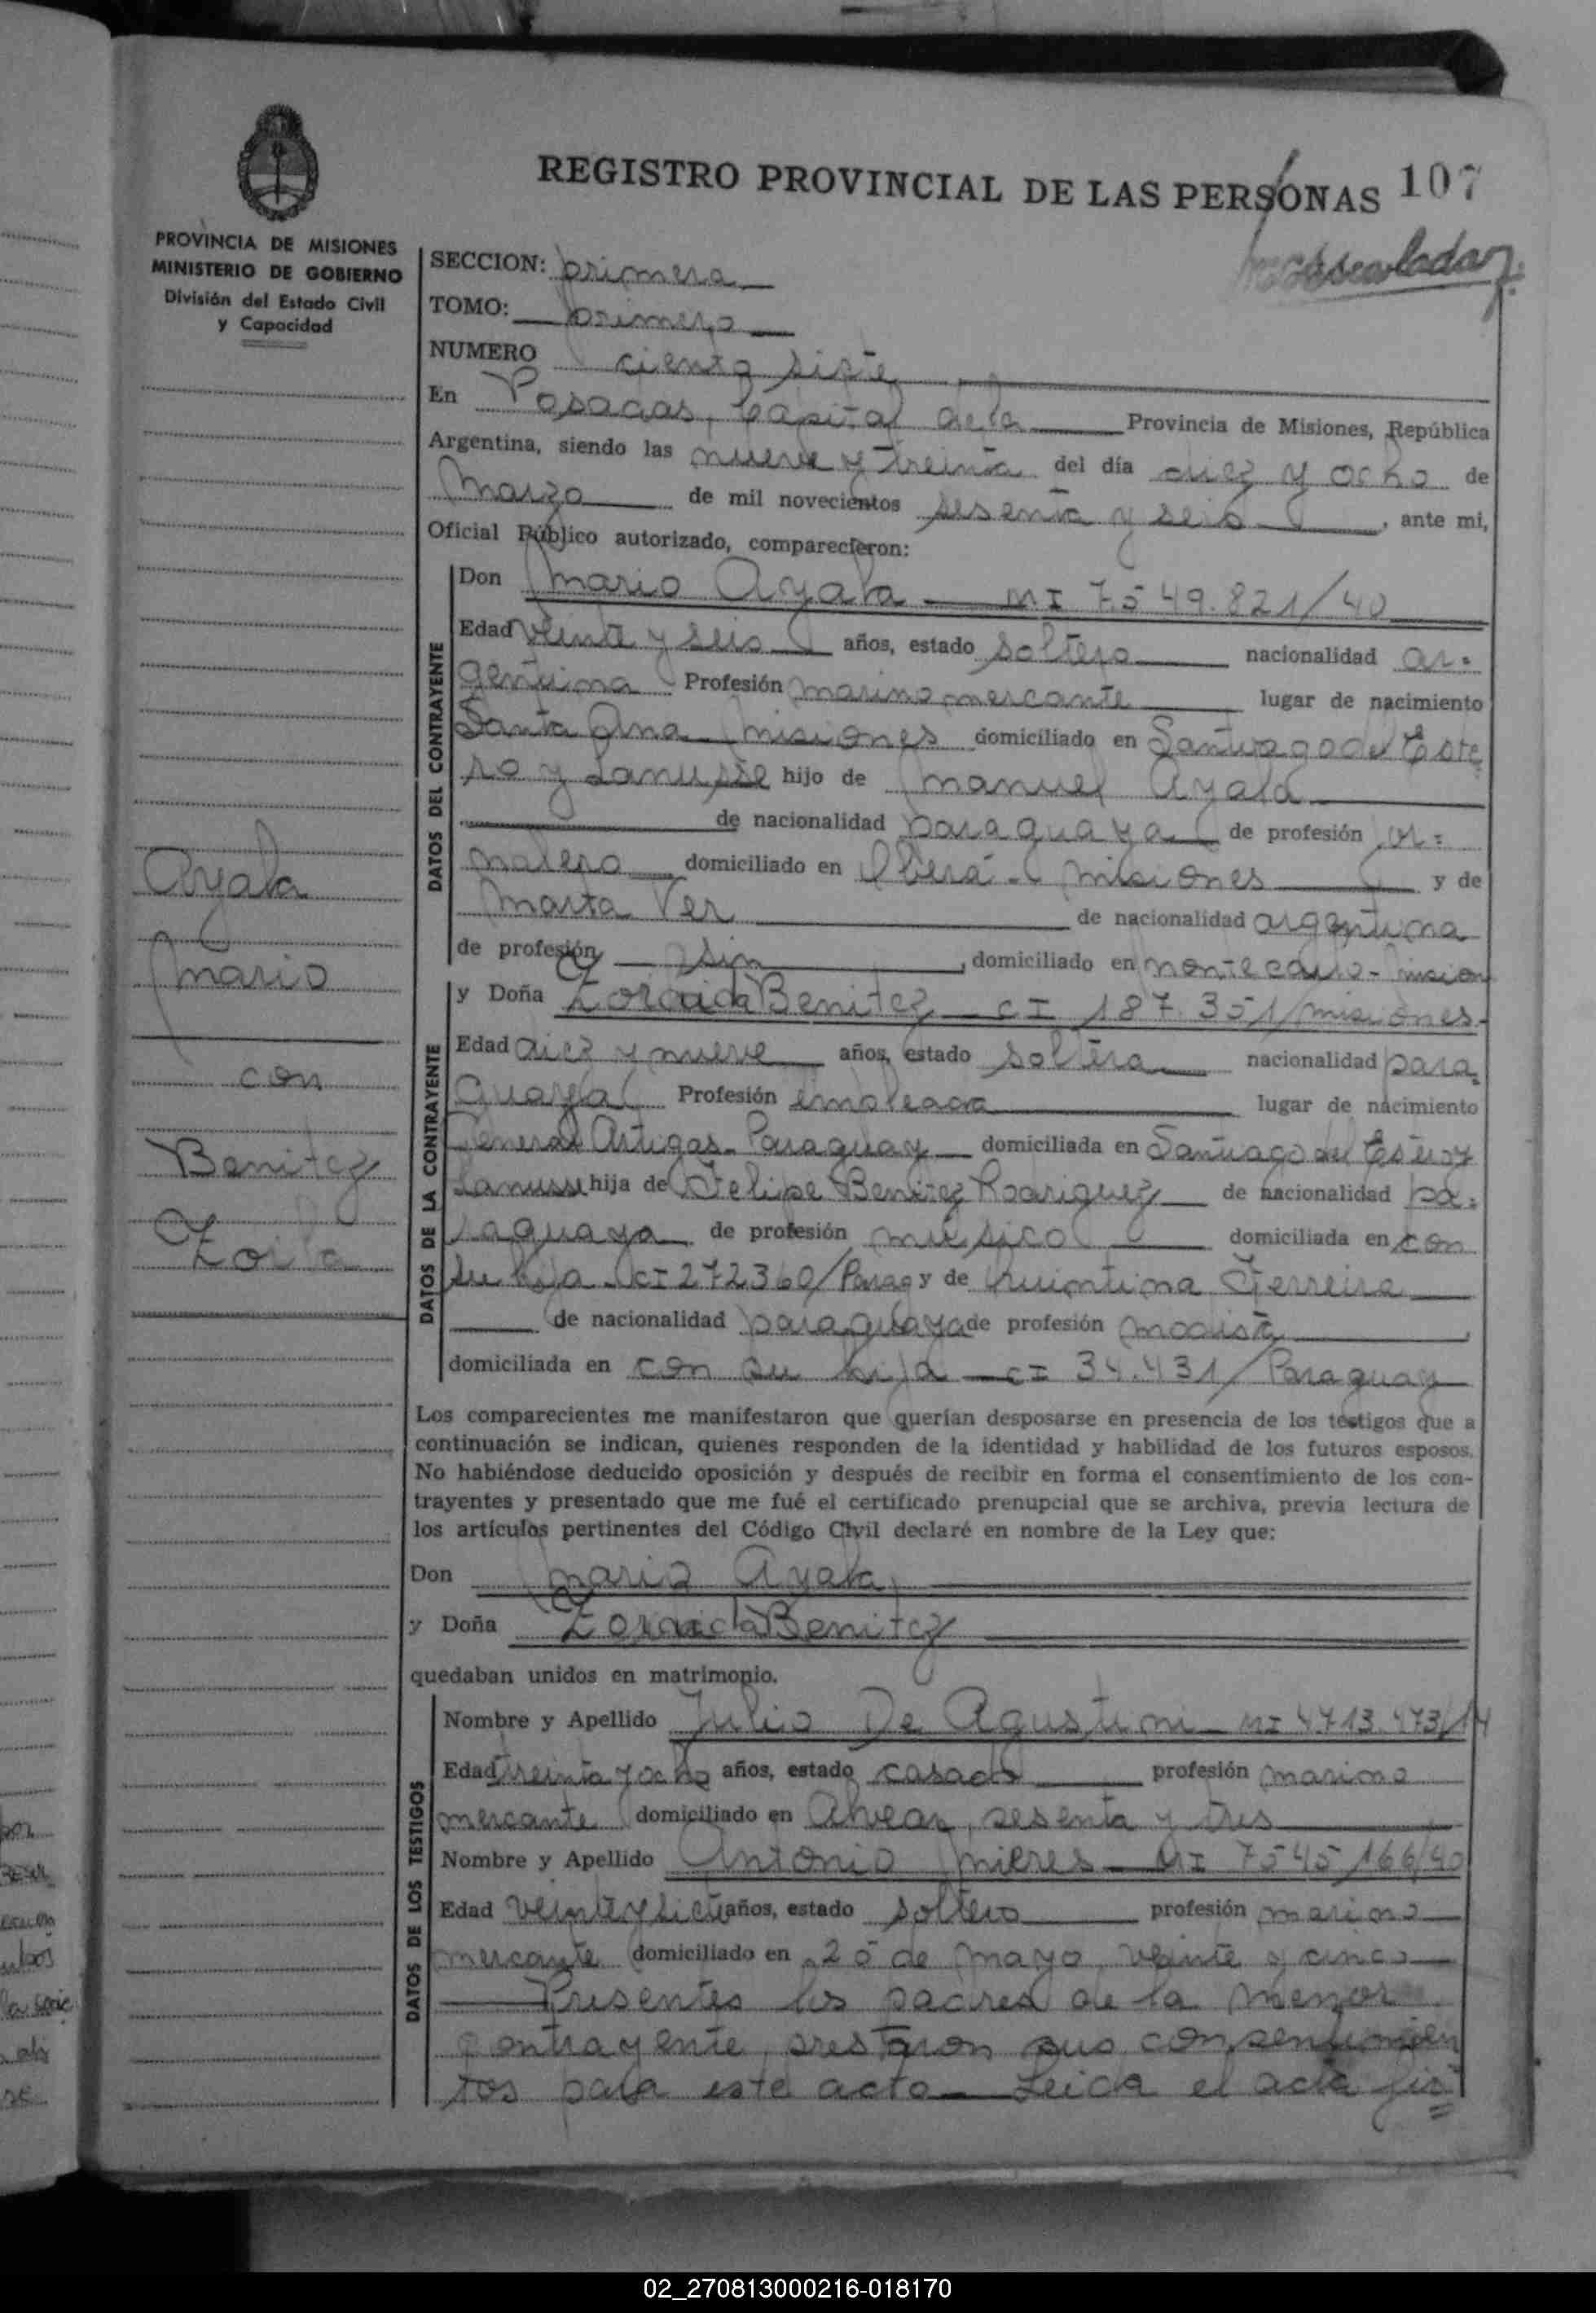 REGISTRO PROVINCIAL DE LAS PERSONAS 107
PROVINCIA DE MISIONES
MINISTERIO DE GOBIERNO
División del Estado Civil
y Capacidad
SECCION: primera
TOMO: primero
NUMERO ciento siete
En Posadas, Capital de la Provincia de Misiones, República
Argentina, siendo las nueve y treinta del día diez y ocho de
Marzo de mil novecientos sesenta y seis, ante mi,
Oficial Público autorizado, comparecieron:
DATOS DEL CONTRAYENTE
Don Mario Ayala — MI 7.549.821/40
Edad veinte y seis años, estado soltero nacionalidad ar=
gentina Profesión marino mercante lugar de nacimiento
Santa Ana Misiones domiciliado en Santiago del Este
ro y Lanusse hijo de Manuel Ayala
de nacionalidad paraguaya de profesión jor=
nalero domiciliado en Oberá - Misiones y de
Marta Ver de nacionalidad argentina
de profesión sin, domiciliado en Montecarlo - Mision
DATOS DE LA CONTRAYENTE
y Doña Zoraida Benitez — CI 187.351/Misiones-
Edad diez y nueve años, estado soltera nacionalidad para
guaya Profesión empleada lugar de nacimiento
General Artigas - Paraguay domiciliada en Santiago del Estero y
Lanusse hija de Felipe Benitez Rodriguez de nacionalidad pa=
raguaya de profesión músico domiciliada en con
su hija - CI 272360/Parag y de Quintina Ferreira
de nacionalidad paraguaya de profesión modista
domiciliada en con su hija — CI 34.431/Paraguay
Los comparecientes me manifestaron que querían desposarse en presencia de los testigos que a
continuación se indican, quienes responden de la identidad y habilidad de los futuros esposos.
No habiéndose deducido oposición y después de recibir en forma el consentimiento de los con-
trayentes y presentado que me fué el certificado prenupcial que se archiva, previa lectura de
los artículos pertinentes del Código Civil declaré en nombre de la Ley que:
Don Mario Ayala
y Doña Zoraida Benitez
quedaban unidos en matrimonio.
DATOS DE LOS TESTIGOS
Nombre y Apellido Julio De Agustini - MI 4713.473/14
Edad treinta y ocho años, estado casado profesión marino
mercante domiciliado en Alvear, sesenta y tres
Nombre y Apellido Antonio Mieres - MI 7545.166/40
Edad veinte y siete años, estado soltero profesión marino
mercante domiciliado en 25 de Mayo veinte y cinco
Presentes los padres de la menor
contrayente, prestaron sus consentimien
tos para este acto — Leida el acta fir=
Ayala
Mario
con
Benitez
Zoila
02_270813000216-018170